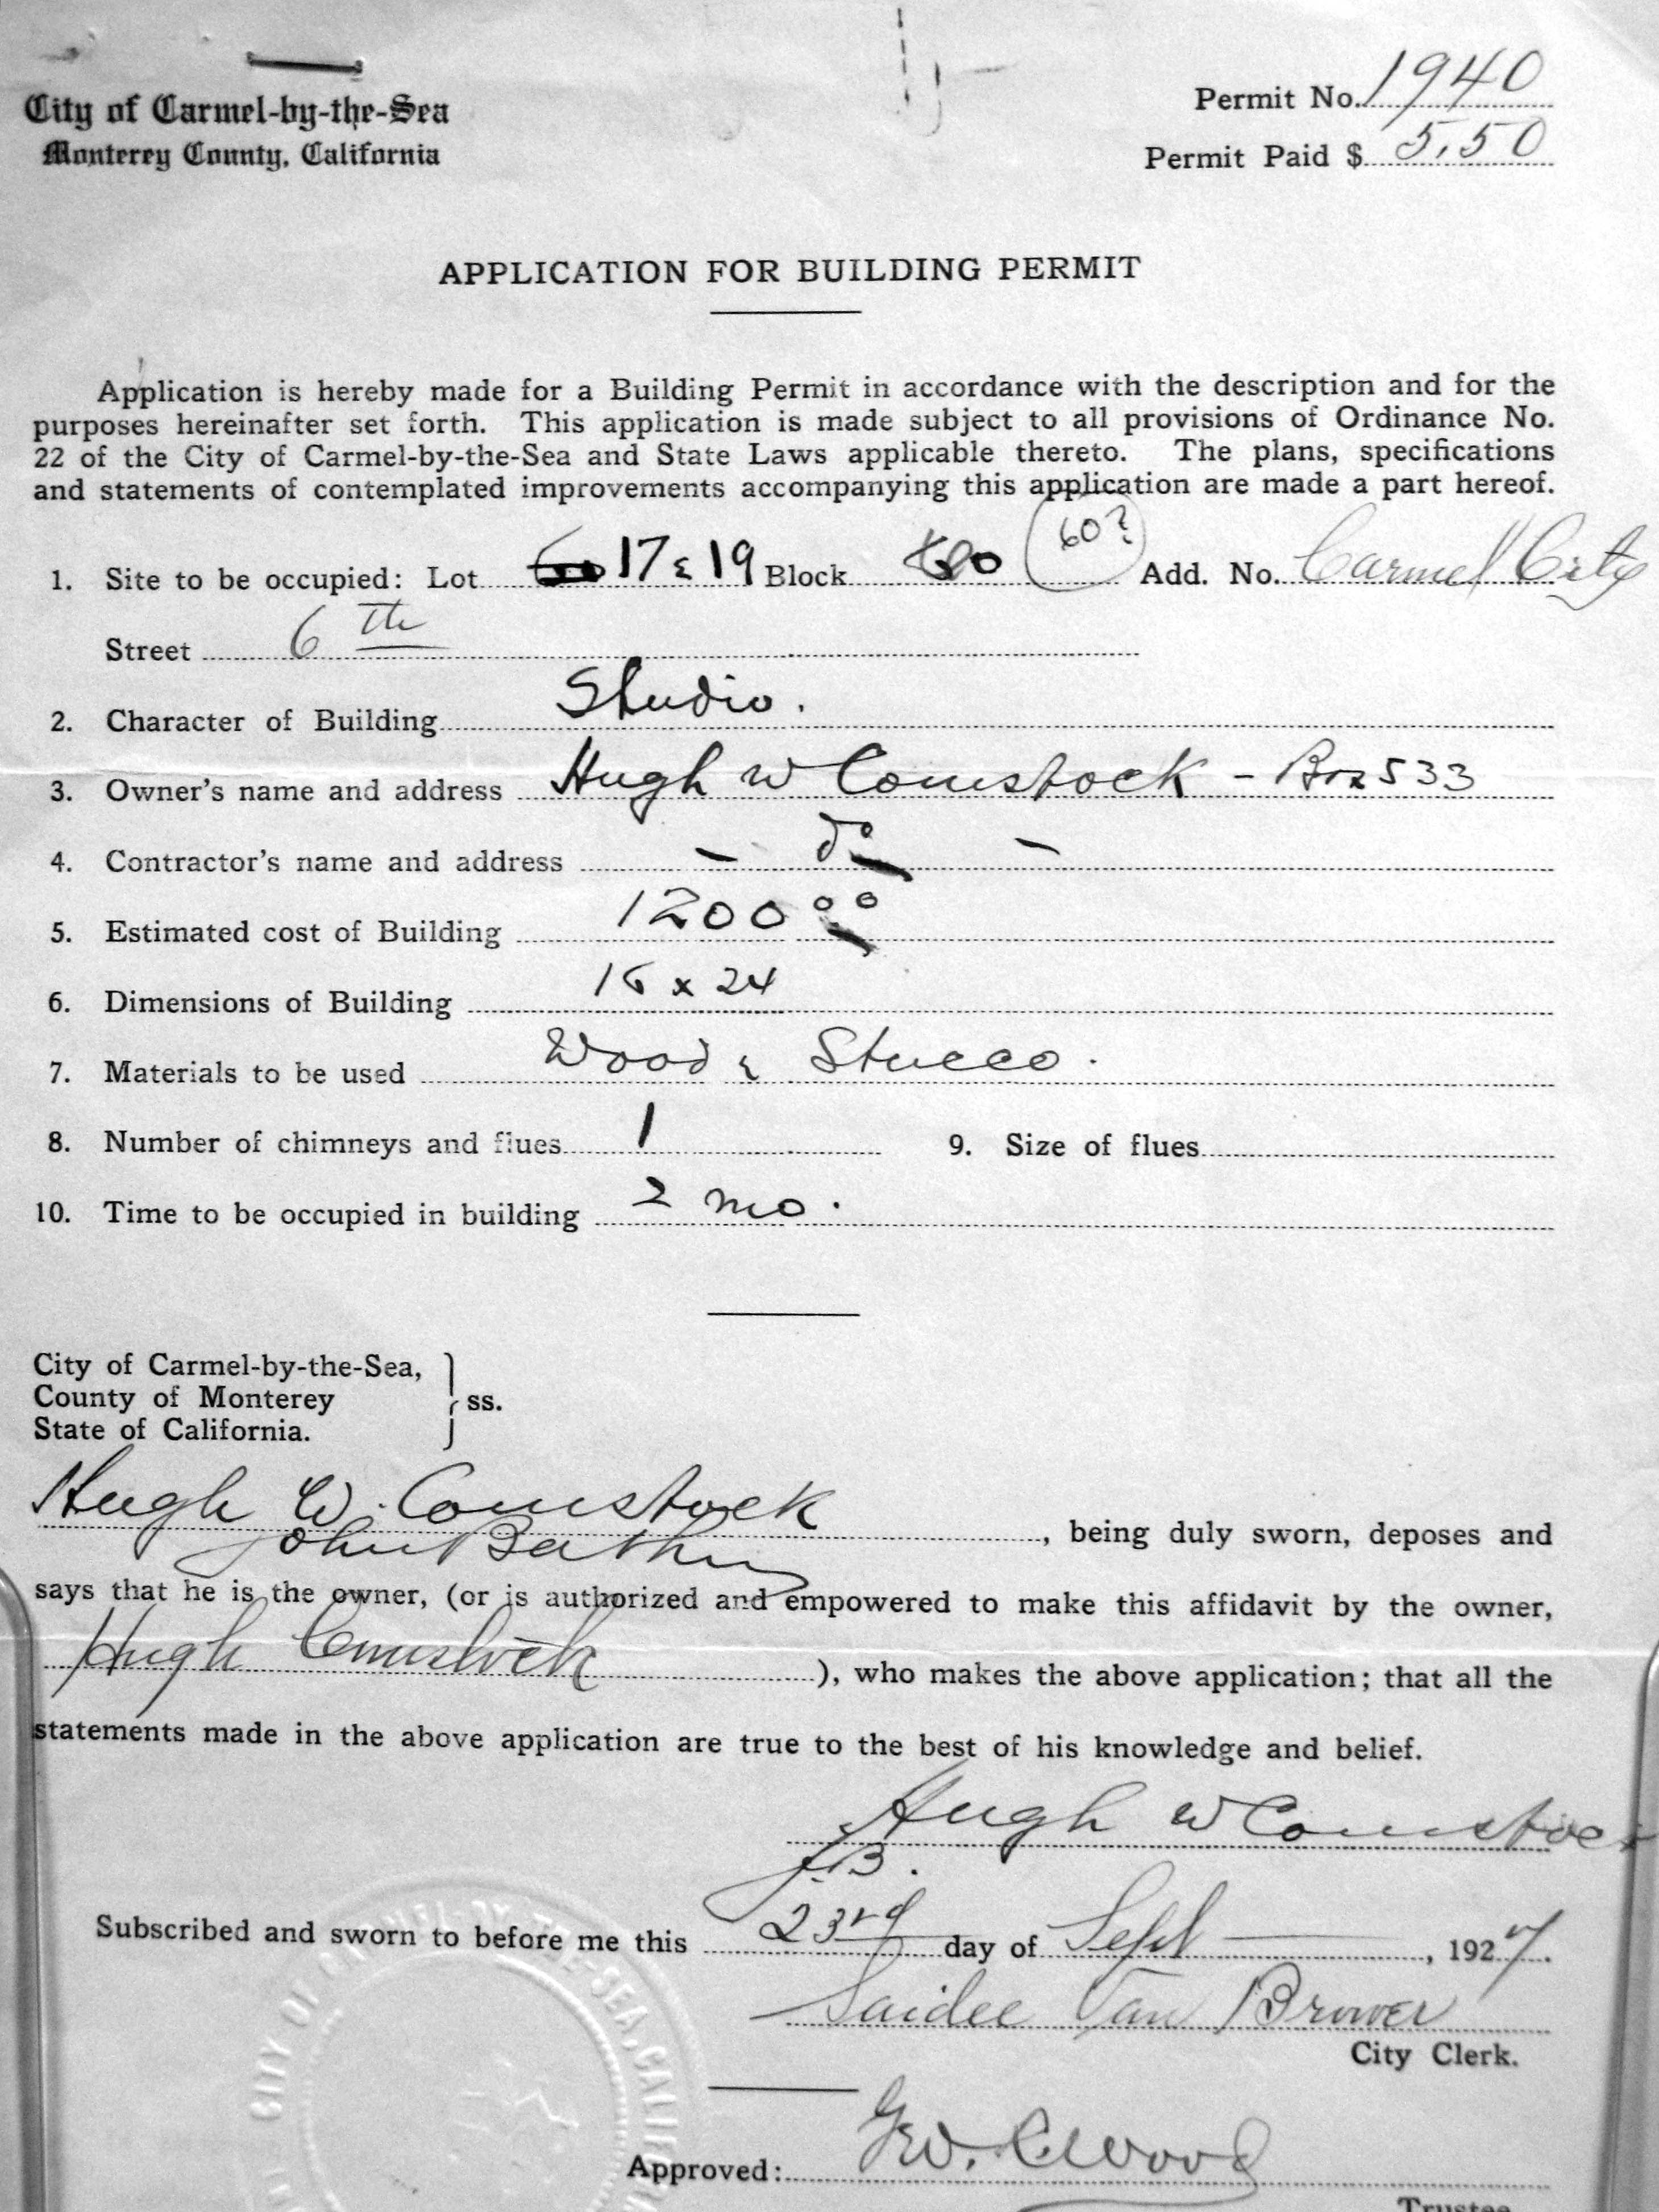 City of Carmel-by-the-Sea
Monterey County, California
Permit No. 1940
Permit Paid $ 5.50
APPLICATION FOR BUILDING PERMIT
Application is hereby made for a Building Permit in accordance with the description and for the
purposes hereinafter set forth. This application is made subject to all provisions of Ordinance No.
22 of the City of Carmel-by-the-Sea and State Laws applicable thereto. The plans, specifications
and statements of contemplated improvements accompanying this application are made a part hereof.
1. Site to be occupied: Lot 17 & 19 Block 60? Add. No. Carmel City
Street 6th
2. Character of Building Studio.
3. Owner's name and address Hugh W Comstock - Box 533
4. Contractor's name and address - do -
5. Estimated cost of Building 1200 00
6. Dimensions of Building 16 x 24
7. Materials to be used Wood & Stucco.
8. Number of chimneys and flues 1 9. Size of flues
10. Time to be occupied in building 2 mo.
City of Carmel-by-the-Sea,
County of Monterey } ss.
State of California.
Hugh W. Comstock
John , being duly sworn, deposes and
says that he is the owner, (or is authorized and empowered to make this affidavit by the owner,
Hugh Comstock ), who makes the above application; that all the
statements made in the above application are true to the best of his knowledge and belief.
Hugh W Comstock
J.B.
Subscribed and sworn to before me this 23rd day of Sept , 1927.
Saidee Van Brower
City Clerk.
CITY OF CARMEL-BY-THE-SEA, CALIFORNIA
Approved: Geo. L. Wood
Trustee